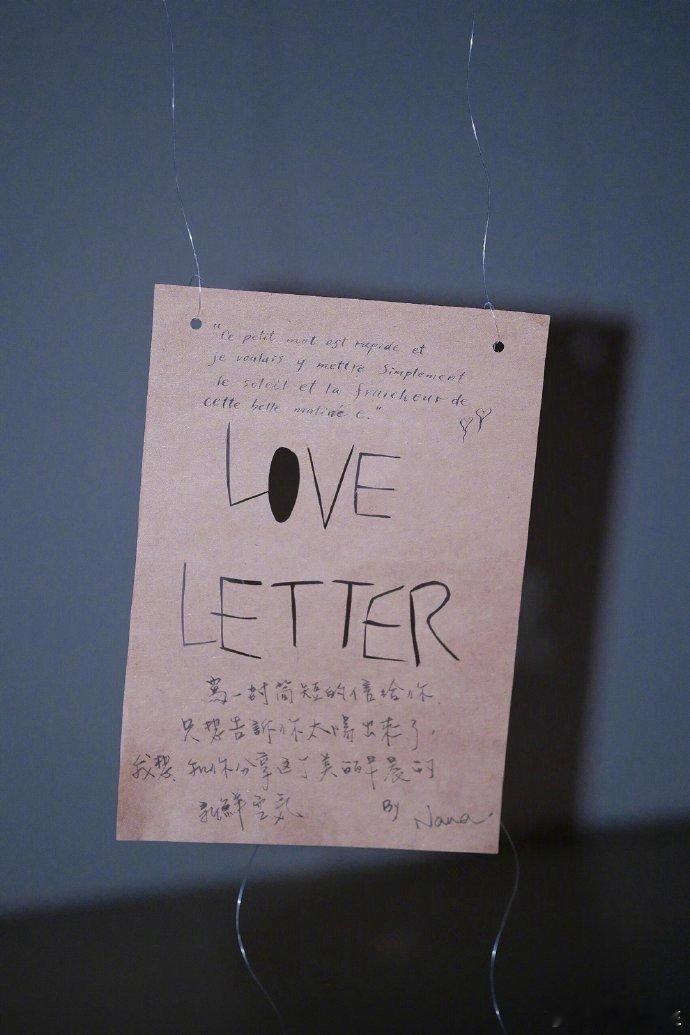 "Ce petit mot est rapide et
je voulais y mettre Simplement
le soleil et la fraicheur de
cette belle matiné e."
LOVE
LETTER
寫一封簡短的信給你.
只想告訴你太陽出來了.
我想和你分享这个美丽早晨的
新鮮空氣
By Nana.